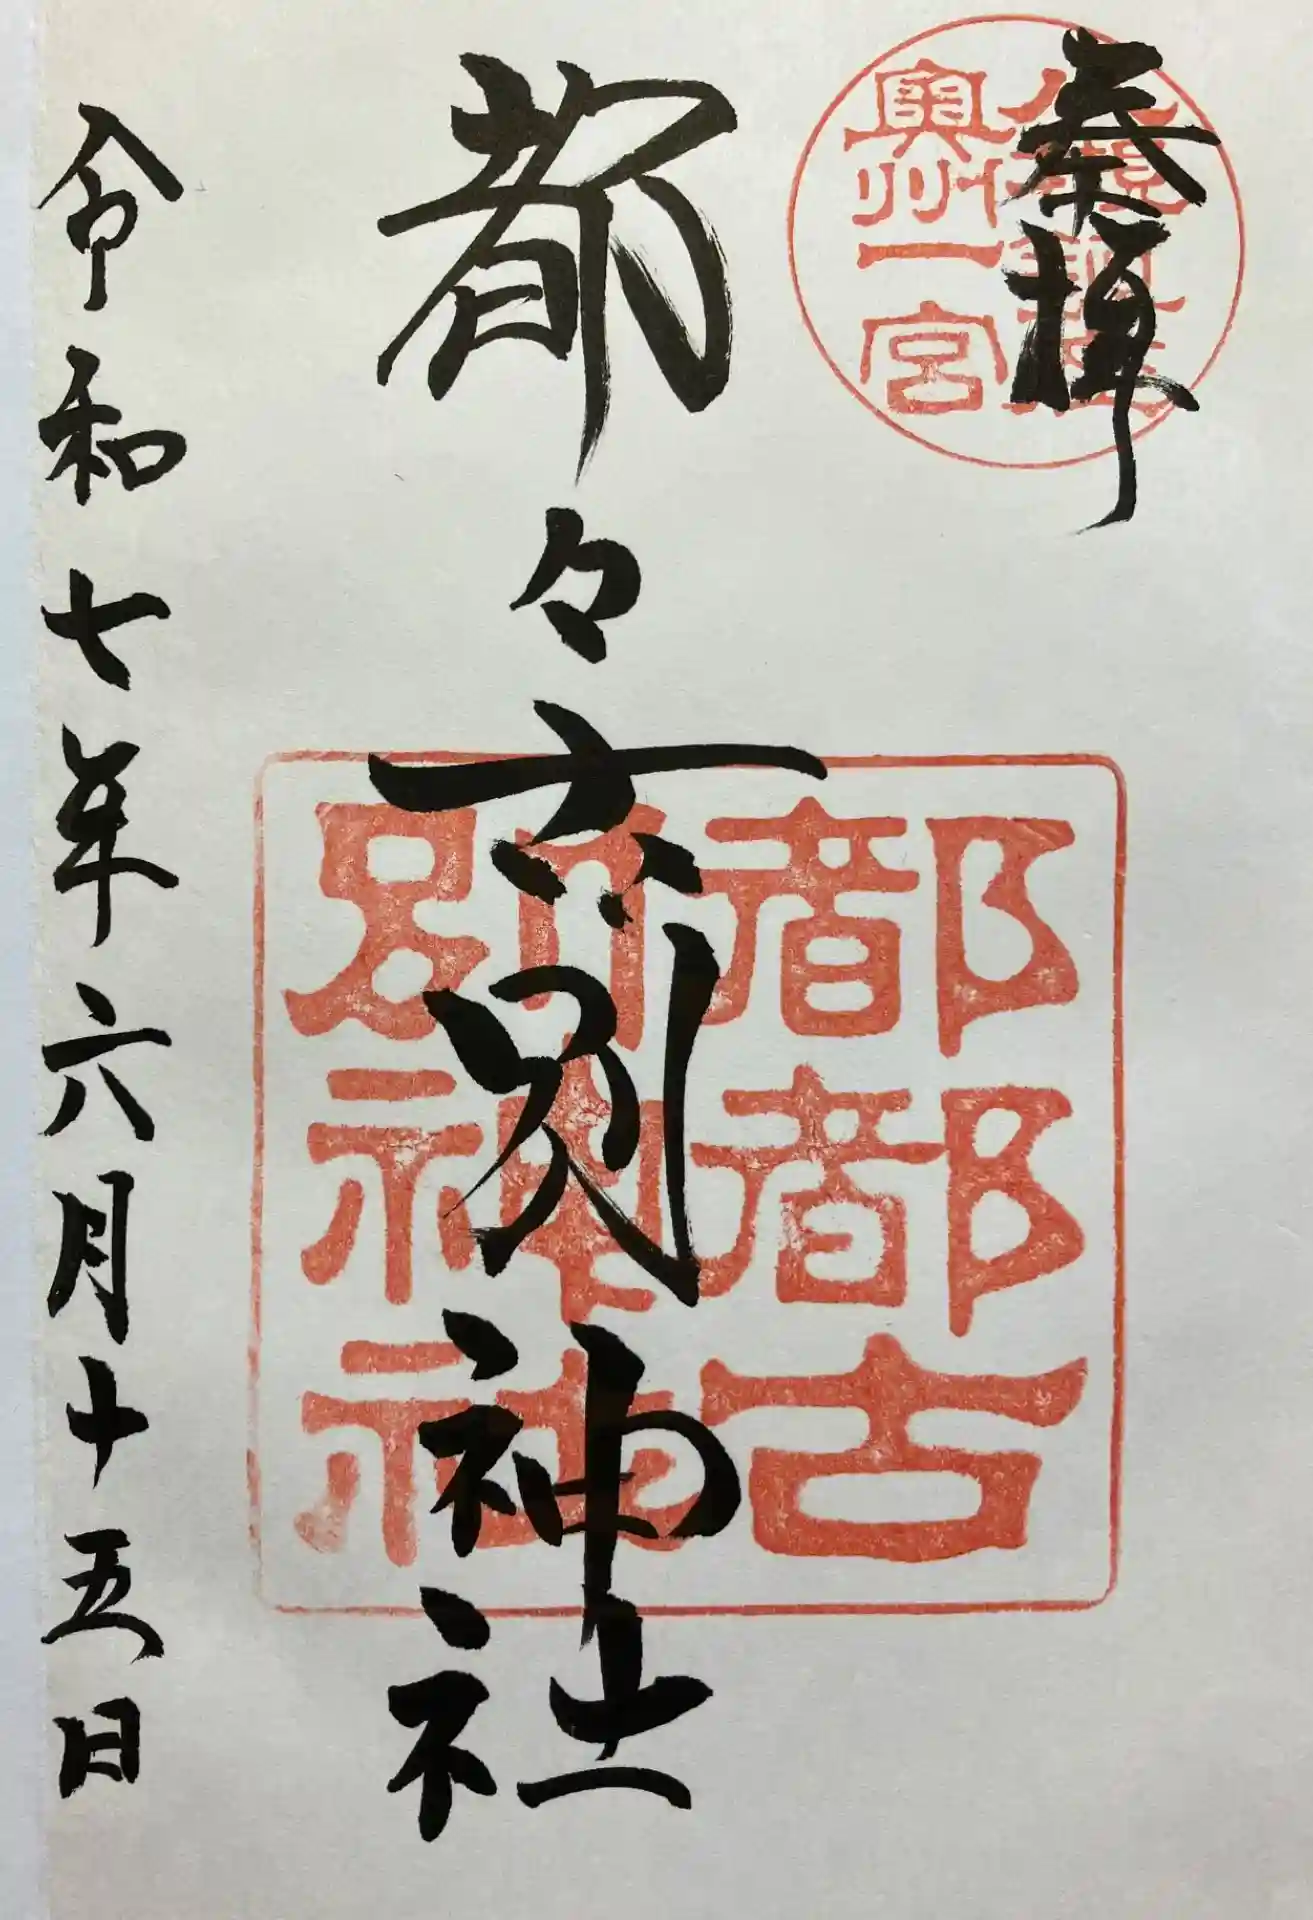 奉拝
八槻鎮座
奥州一宮
都々古別神社
都都古
別神社
令和七年六月十五日